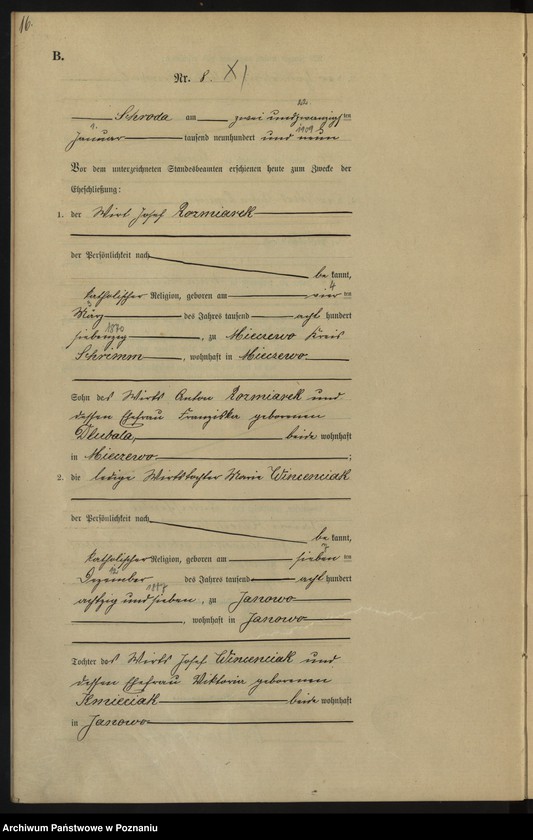 16.
B.
Nr. 8. XI
22.
Schroda am zwei undzwanzigsten
1. 1909
Januar tausend neunhundert und neun
Vor dem unterzeichneten Standesbeamten erschienen heute zum Zwecke der
Eheschließung:
1. der Wirt Josef Rozmiarek
der Persönlichkeit nach
be kannt,
4
katholischer Religion, geboren am vier ten
3
März des Jahres tausend acht hundert
1870
siebenzig, zu Mieczewo Kreis
Schrimm, wohnhaft in Mieczewo
Sohn des Wirts Anton Rozmiarek und
dessen Ehefrau Franziska geborenen
Dlubala, beide wohnhaft
in Mieczewo;
2. die ledige Wirtstochter Marie Wincenciak
der Persönlichkeit nach
be kannt,
7
katholischer Religion, geboren am sieben ten
Dezember des Jahres tausend acht hundert
12 1887
achtzig und sieben, zu Janowo
, wohnhaft in Janowo
Tochter des Wirts Josef Wincenciak und
dessen Ehefrau Viktoria geborenen
Kmieciak beide wohnhaft
in Janowo
Archiwum Państwowe w Poznaniu